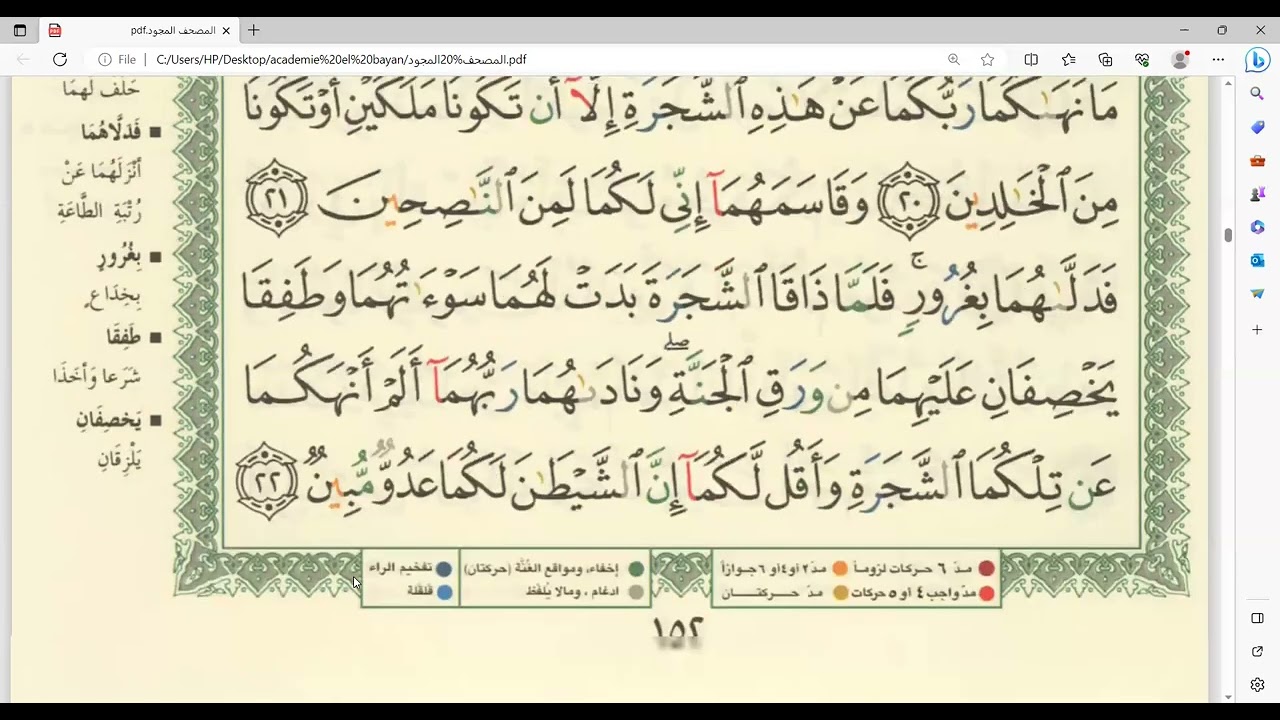 المصحف المجود.pdf
File
C:/Users/HP/Desktop/academie%20el%20bayan/المصحف%20المجود.pdf
مَا نَهَىٰكُمَا رَبُّكُمَا عَنْ هَٰذِهِ ٱلشَّجَرَةِ إِلَّآ أَن تَكُونَا مَلَكَيْنِ أَوْ تَكُونَا
مِنَ ٱلْخَٰلِدِينَ ٢٠ وَقَاسَمَهُمَآ إِنِّى لَكُمَا لَمِنَ ٱلنَّٰصِحِينَ ٢١
فَدَلَّىٰهُمَا بِغُرُورٍ ۚ فَلَمَّا ذَاقَا ٱلشَّجَرَةَ بَدَتْ لَهُمَا سَوْءَٰتُهُمَا وَطَفِقَا
يَخْصِفَانِ عَلَيْهِمَا مِن وَرَقِ ٱلْجَنَّةِ ۖ وَنَادَىٰهُمَا رَبُّهُمَآ أَلَمْ أَنْهَكُمَا
عَن تِلْكُمَا ٱلشَّجَرَةِ وَأَقُل لَّكُمَآ إِنَّ ٱلشَّيْطَٰنَ لَكُمَا عَدُوٌّ مُّبِينٌ ٢٢
حَلَفَ لَهُمَا
■ فَدَلَّاهُمَا
أَنْزَلَهُمَا عَنْ
رُتْبَةِ الطَّاعَةِ
■ بِغُرُورٍ
بِخِدَاعٍ
■ طَفِقَا
شَرَعا وَأَخَذَا
■ يَخصِفَانِ
يَلْزِقَانِ
مدّ ٦ حركات لزوماً
مدّ ٢ او ٤ او ٦ جوازاً
إخفاء، ومواقع الغُنَّة (حركتان)
تفخيم الراء
مدّ واجب ٤ او ٥ حركات
مدّ حــركتــــان
ادغام ، ومالا يُلفَظ
قلقلة
١٥٢